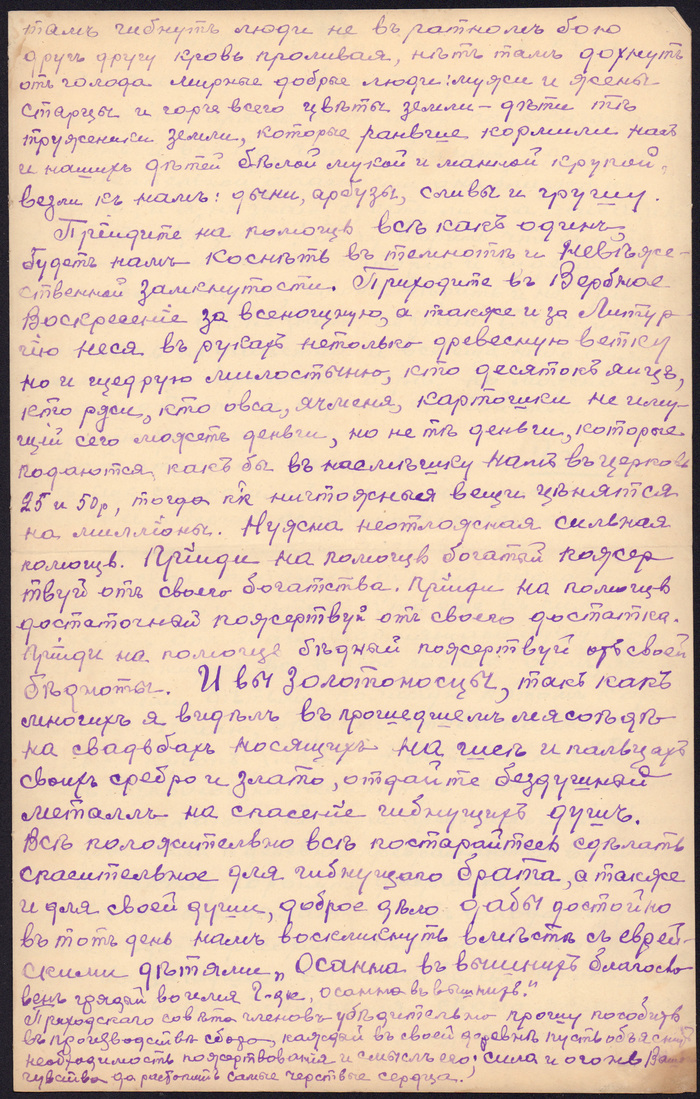 тамъ гибнутъ люди не въ ратномъ бою
другъ другу кровь проливая, нѣтъ тамъ дохнутъ
отъ голода мирные добрые люди: мужи и жены
старцы и горше всего цвѣты земли – дѣти тѣ
труженики земли, которые раньше кормили насъ
и нашихъ дѣтей бѣлой мукой и манной крупой,
везли къ намъ: дыни, арбузы, сливы и грушу.
Прійдите на помощь всѣ какъ одинъ,
будетъ намъ коснѣть въ темнотѣ и невѣже-
ственной замкнутости. Приходите въ Вербное
Воскресеніе за всенощную, а также и за Литур-
гію неся въ рукахъ нетолько древесную вѣтку
но и щедрую милостыню, кто десятокъ яицъ,
кто ржи, кто овса, ячменя, картошки не иму-
щій сего можетъ деньги, но не тѣ деньги, которые
подаются какъ бы въ насмѣшку намъ въ церковь
25 и 50р, тогда к'к ничтожныя вещи цѣнятся
на милліоны. Нужна неотложная сильная
помощь. Прійди на помощь богатый пожер
твуй отъ своего богатства. Прійди на помощь
достаточный пожертвуй отъ своего достатка.
Прійди на помощь бѣдный пожертвуй отъ своей
бѣдноты. И вы золотоносцы, такъ какъ
многихъ я видѣлъ въ прошедшемъ мясоѣдѣ
на свадьбахъ носящихъ на шеѣ и пальцахъ
своихъ сребро и злато, отдайте бездушный
металлъ на спасеніе гибнущихъ душъ.
Всѣ положительно всѣ постарайтесь сдѣлать
спасительное для гибнущаго брата, а также
и для своей души, доброе дѣло дабы достойно
въ тотъ день намъ воскликнуть вмѣстѣ съ еврей-
скими дѣтями „Осанна въ вышнихъ благосло
венъ грядый во имя Г-дне, осанна въ вышнихъ."
Приходскаго совѣта членовъ убѣдительно прошу пособить
въ производствѣ сбора, каждый въ своей деревнѣ пусть объяснитъ
необходимость пожертвованія и смыслъ его, сила и огонь Вашего
чувства да растопитъ самые черствые сердца.